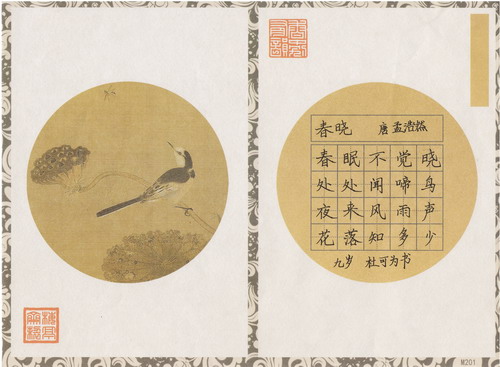 春晓 唐 孟浩然
春眠不觉晓
处处闻啼鸟
夜来风雨声
花落知多少
九岁 杜可为书
M201